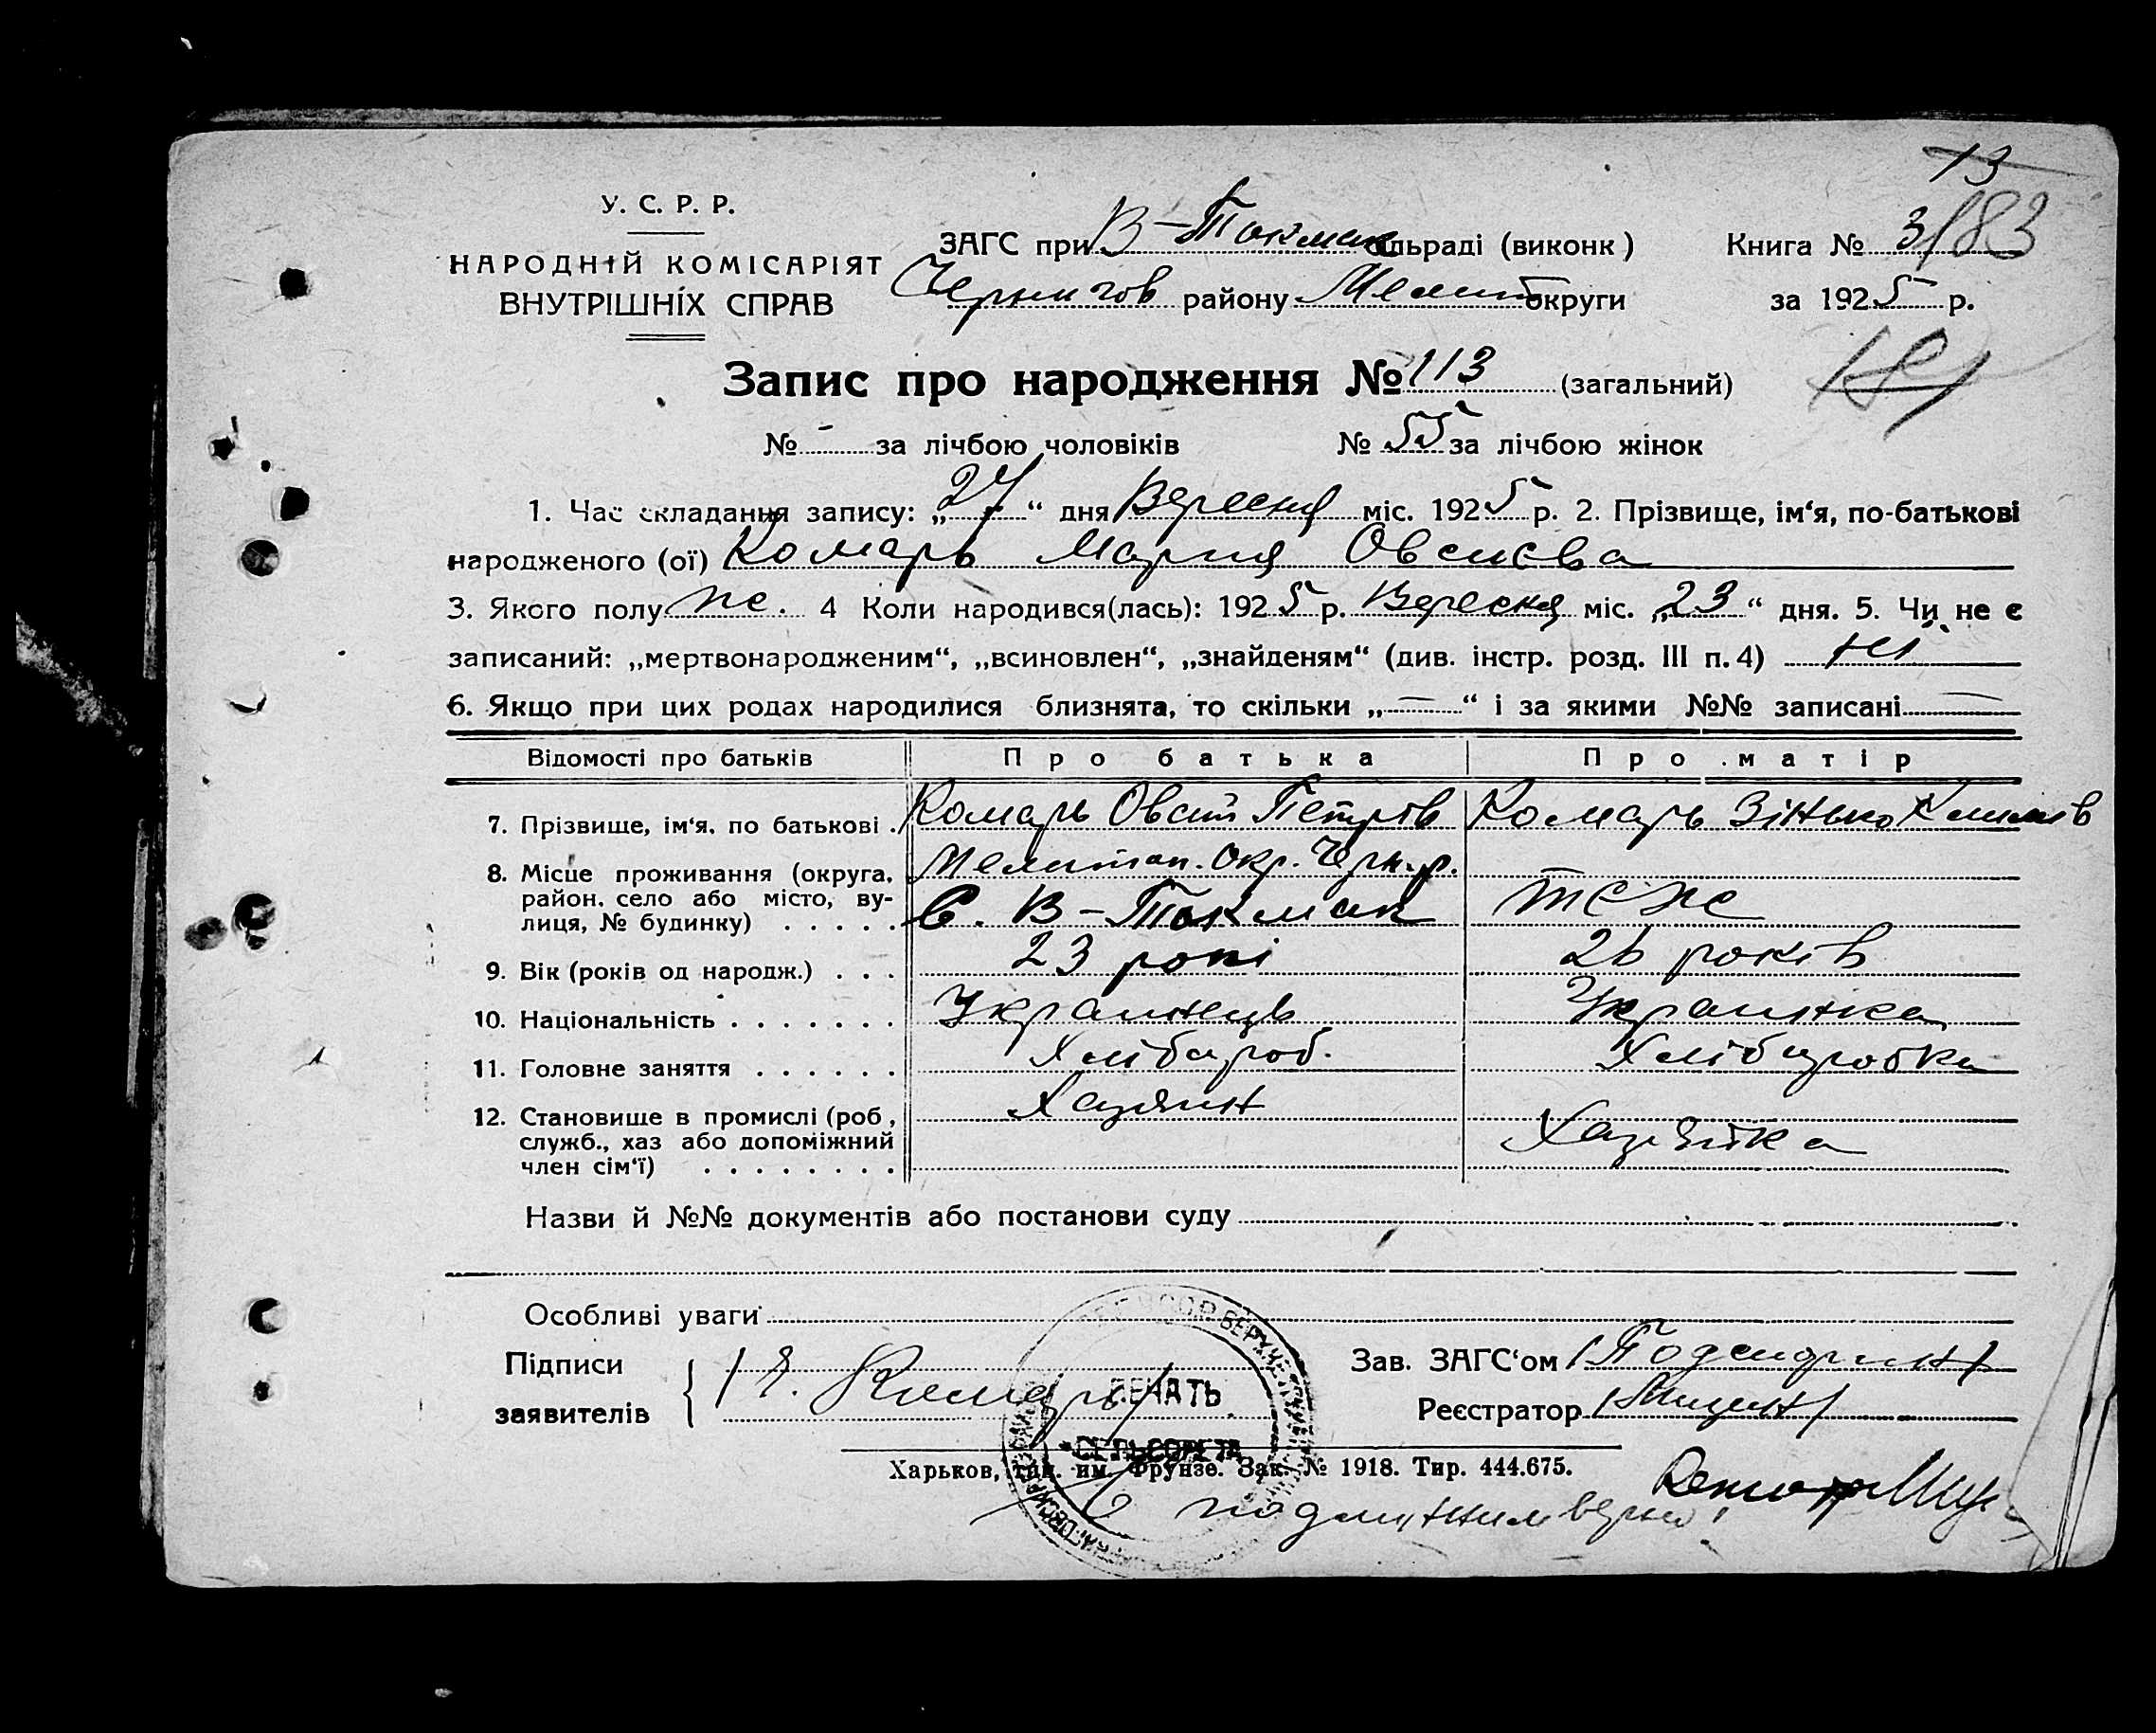 13
У. С. Р. Р.
НАРОДНІЙ КОМІСАРІЯТ
ВНУТРІШНІХ СПРАВ
ЗАГС при В-Токмак сільраді (виконк)
Чернигов району Мелит округи
Книга № 3/83
за 1925 р.
Запис про народження № 113 (загальний)
181
№ - за лічбою чоловіків № 55 за лічбою жінок
1. Час складання запису: „27“ дня Вересня міс. 1925 р. 2. Прізвище, ім‘я, по-батькові
народженого (ої) Комарь Мария Овсиєва
3. Якого полу же. 4 Коли народився(лась): 1925 р. Вересня міс. „23“ дня. 5. Чи не є
записаний: „мертвонародженим“, „всиновлен“, „знайденям“ (див. інстр. розд. III п. 4) ні
6. Якщо при цих родах народилися близнята, то скільки „—“ і за якими №№ записані —
Відомості про батьків Про батька Про матір
7. Прізвище, ім‘я, по батькові . Комарь Овсій Петрів Комарь Зінько
8. Місце проживання (округа, район, село або місто, вулиця, № будинку) . . . . . Мелитоп. окр. Черн. р.
С. В-Токмак теже
9. Вік (років од народж.) . . . 23 рокі 26 років
10. Національність . . . . . . . Украинець Украинка
11. Головне заняття . . . . . . Хлібароб. Хлібаробка
12. Становище в промислі (роб, Хазяин
служб., хаз або допоміжний Хазяйка
член сім‘ї) . . . . . . . .
Назви й №№ документів або постанови суду
Особливі уваги
Підписи
заявителів
Комарь
Зав. ЗАГС‘ом
Реєстратор
ПЕЧАТЬ
СЕЛЬСОВЕТА
Харьков, тип. им. Фрунзе. Зак. № 1918. Тир. 444.675.
С подлинним верно!